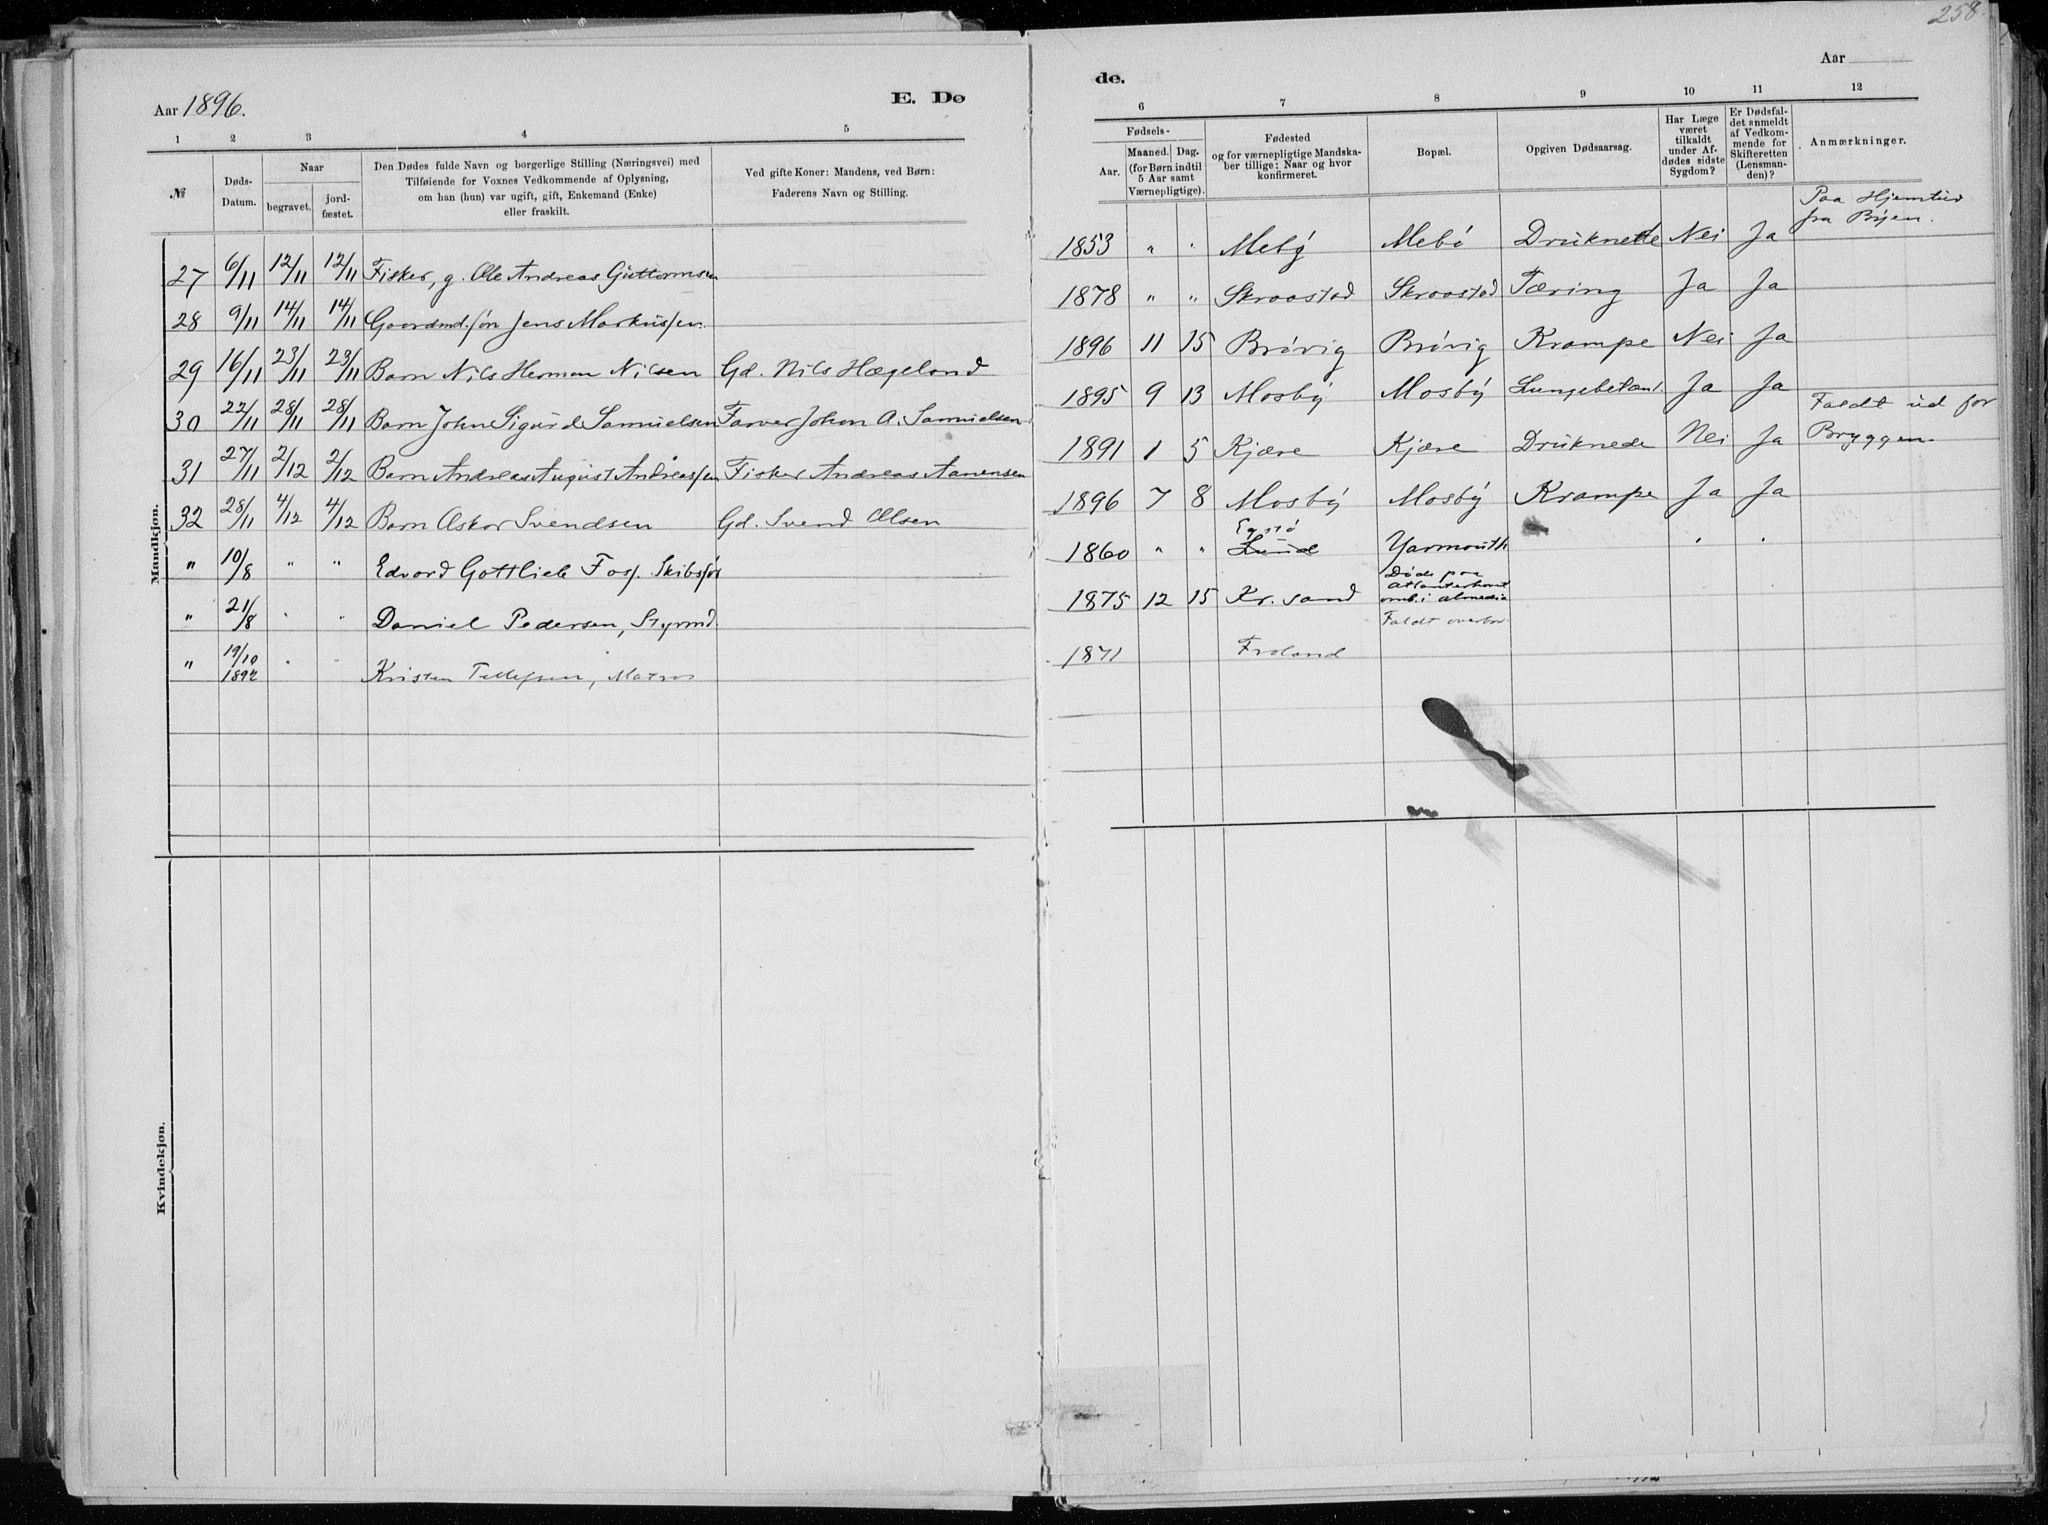 258.
Aar 1896.
E. Dø
de.
Aar
1 2 3 4 5
6 7 8 9 10 11 12
№
Døds-Datum.
Naar
begravet.
jord-fæstet.
Den Dødes fulde Navn og borgerlige Stilling (Næringsvei) med
Tilføiende for Voxnes Vedkommende af Oplysning,
om han (hun) var ugift, gift, Enkemand (Enke)
eller fraskilt.
Ved gifte Koner: Mandens, ved Børn:
Faderens Navn og Stilling.
Fødsels-
Aar.
Maaned. Dag.
(for Børn indtil
5 Aar samt
Værnepligtige).
Fødested
og for værnepligtige Mandska-
ber tillige: Naar og hvor
konfirmeret.
Bopæl.
Opgiven Dødsaarsag.
Har Læge
været
tilkaldt
under Af-
dødes sidste
Sygdom?
Er Dødsfal-
det anmeldt
af Vedkom-
mende for
Skifteretten
(Lensman-
den)?
Anmærkninger.
Mandkjøn.
27 6/11 12/11 12/11 Fisker, g. Ole Andreas Guttormsen 1853 " " Mebø Mebø Druknede Nei Ja Paa Hjemtur
fra Byen.
28 9/11 14/11 14/11 Gaardmd.søn Jens Markussen 1878 " " Skraastad Skraastad Tæring Ja Ja
29 16/11 23/11 23/11 Barn Nils Herman Nilsen Gd. Nils Hægeland 1896 11 15 Brøvig Brøvig Krampe Nei Ja
30 22/11 28/11 28/11 Barn John Sigurd Samuelsen Farver Johan A. Samuelsen 1895 9 13 Mosby Mosby Lungebetænd. Ja Ja
31 27/11 2/12 2/12 Barn Andreas August Andreassen Fisker Andreas Aanensen 1891 1 5 Kjære Kjære Druknede Nei Ja Faldt ud for
Bryggen
32 28/11 4/12 4/12 Barn Askar Svendsen Gd. Svend Olsen 1896 7 8 Mosby Mosby Krampe Ja Ja
" 10/8 " " Edvard Gottlieb Foss. Skibsfør 1860 " " Lund Yarmouth
" 21/8 " " Daniel Pedersen, Styrmd. 1875 12 15 Kr. sand Døde paa
Atlanterhavet
omb. i Almedia
Faldt overbor
" 19/10
1892 " " Kristen Tellefsen, Matros 1871 Froland
Kvindekjøn.